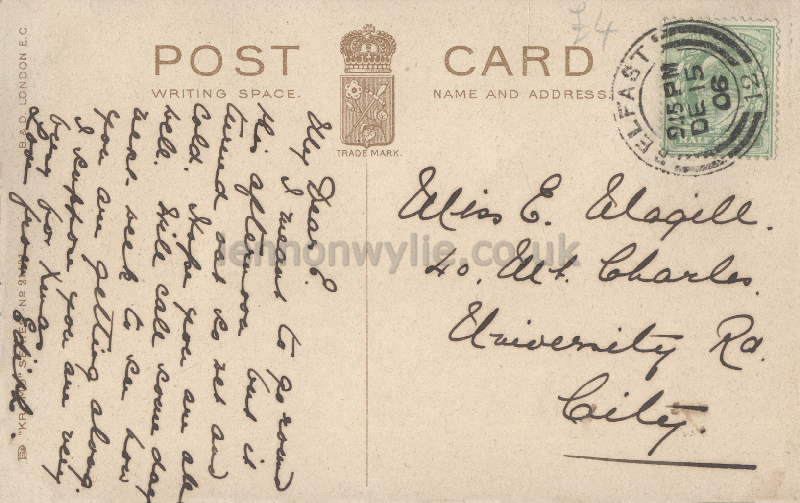 POST CARD
WRITING SPACE.
NAME AND ADDRESS.
TRADE MARK.
£4
BELFAST
9.15 PM
DE 15
06
My Dear E.
I meant to go round
this afternoon but it
turned out so wet and
cold. Hope you are all
well. Will call some day
next week to see how
you are getting along.
I suppose you are very
busy for Xmas
Love from Edith.
Miss E. Magill.
40, Mt. Charles.
University Rd.
City.
lennonwylie.co.uk
B & D. LONDON E.C.
"KROMO" SERIES No 2